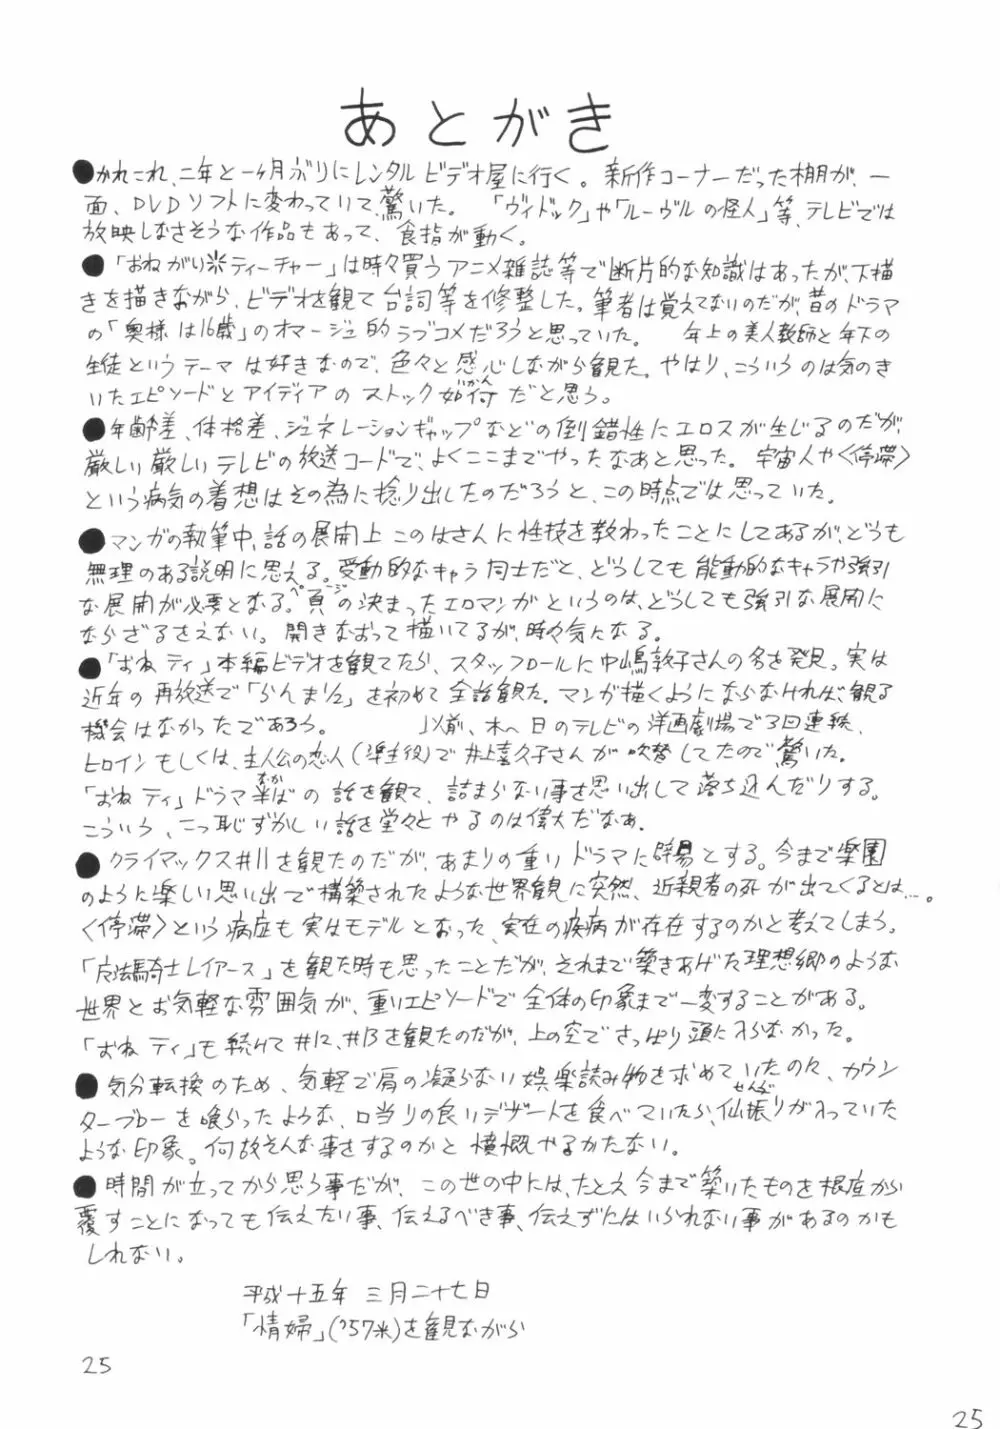 あとがき
●かれこれ、二年と一ヶ月ぶりにレンタルビデオ屋に行く。新作コーナーだった棚が、一
面、DVDソフトに変わっていて、驚いた。「ヴィドック」や「ルーヴルの怪人」等、テレビでは
放映しなさそうな作品もあって、食指が動く。
●「おねがい＊ティーチャー」は時々買うアニメ雑誌等で断片的な知識はあったが、下描
きを描きながら、ビデオを観て台詞等を修整した。筆者は覚えてないのだが、昔のドラマ
の「奥様は16歳」のオマージュ的ラブコメだろうと思っていた。 年上の美人教師と年下の
生徒というテーマは好きなので、色々と感心しながら観た。やはり、こういうのは気のき
いたエピソードとアイディアのストック如何(いかん)だと思う。
●年齢差、体格差、ジェネレーションギャップなどの倒錯性にエロスが生じるのだが、
厳しい厳しいテレビの放送コードで、よくここまでやったなあと思った。宇宙人や〈停滞〉
という病気の着想はその為に捻り出したのだろうと、この時点では思っていた。
●マンガの執筆中、話の展開上このはさんに性技を教わったことにしてあるが、どうも
無理のある説明に思える。受動的なキャラ同士だと、どうしても能動的なキャラや強引
な展開が必要となる。頁(ページ)の決まったエロマンガというのは、どうしても強引な展開に
ならざるさえない。開きなおって描いてるが、時々気になる。
●「おねティ」本編ビデオを観てたら、スタッフロールに中嶋敦子さんの名を発見。実は
近年の再放送で「らんま½」を初めて全話観た。マンガ描くようにならなければ、観る
機会はなかったであろう。 以前、木〜日のテレビの洋画劇場で3回連続、
ヒロインもしくは、主人公の恋人(準主役)で井上喜久子さんが吹替してたので驚いた。
「おねティ」ドラマ半(なか)ばの話を観て、詰まらない事を思い出して落ち込んだりする。
こういう、こっ恥ずかしい話を堂々とやるのは偉大だなぁ。
●クライマックス#11を観たのだが、あまりの重いドラマに辟易とする。今まで楽園
のように楽しい思い出で構築されたような世界観に突然、近親者の死が出てくるとは…。
〈停滞〉という病症も実はモデルとなった、実在の疾病が存在するのかと考えてしまう。
「魔法騎士レイアース」を観た時も思ったことだが、それまで築きあげた理想郷のような
世界とお気軽な雰囲気が、重いエピソードで全体の印象まで一変することがある。
「おねティ」も続けて#12、#13を観たのだが、上の空でさっぱり頭に入らなかった。
●気分転換のため、気軽で肩の凝らない娯楽読み物を求めていたのに、カウン
ターブローを喰らったような、口当りの良いデザートを食べていたら、仙振(せんぶ)りが入っていた
ような印象。何故そんな事をするのかと憤慨やるかたない。
●時間が立ってから思う事だが、この世の中には、たとえ今まで築いたものを根底から
覆すことになっても伝えたい事、伝えるべき事、伝えずにはいられない事があるのかも
しれない。
平成十五年 三月二十七日
「情婦」('57米)を観ながら
25
25